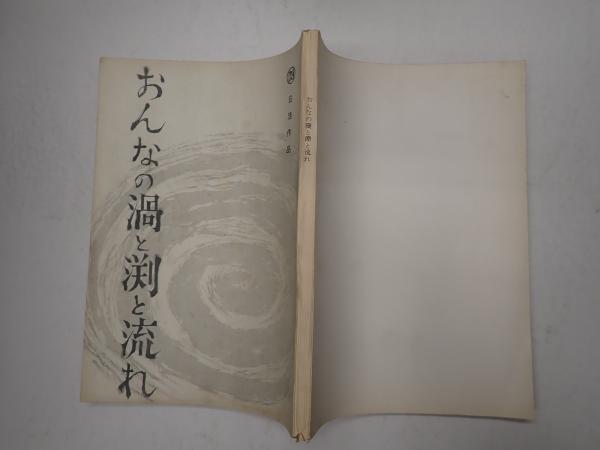 おんなの渦と渕と流れ
日活作品
おんなの渦と渕と流れ